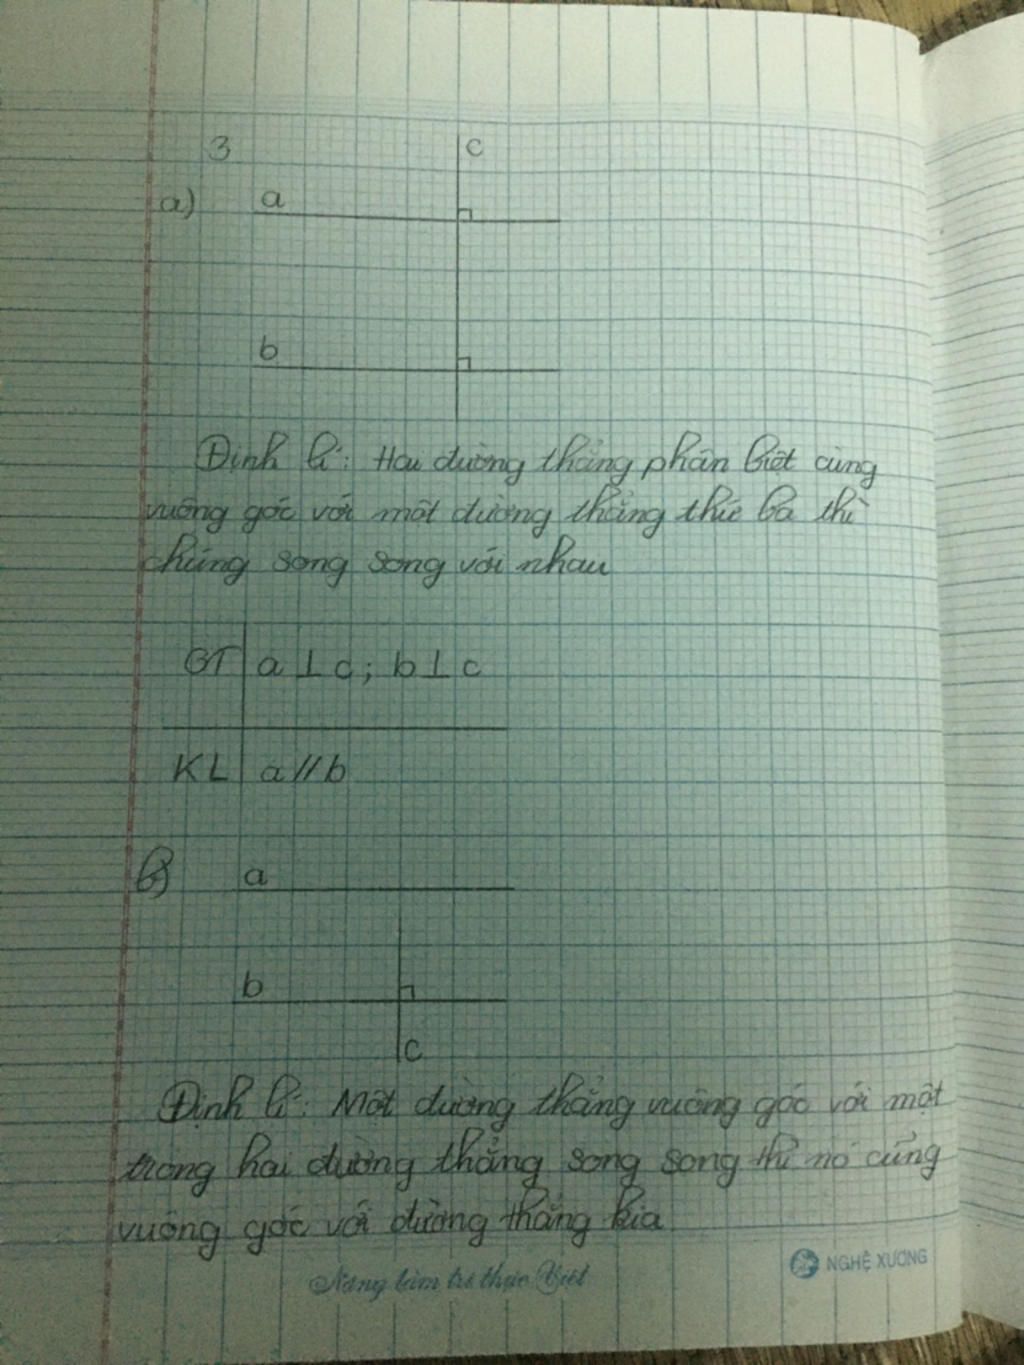 3
c
a) a
b
Định lí: Hai đường thẳng phân biệt cùng
vuông góc với một đường thẳng thứ ba thì
chúng song song với nhau
GT a ⊥ c; b ⊥ c
KL a // b
b) a
b
c
Định lí: Một đường thẳng vuông góc với một
trong hai đường thẳng song song thì nó cũng
vuông góc với đường thẳng kia
Nâng tầm trí thức Việt
NGHỆ XƯƠNG